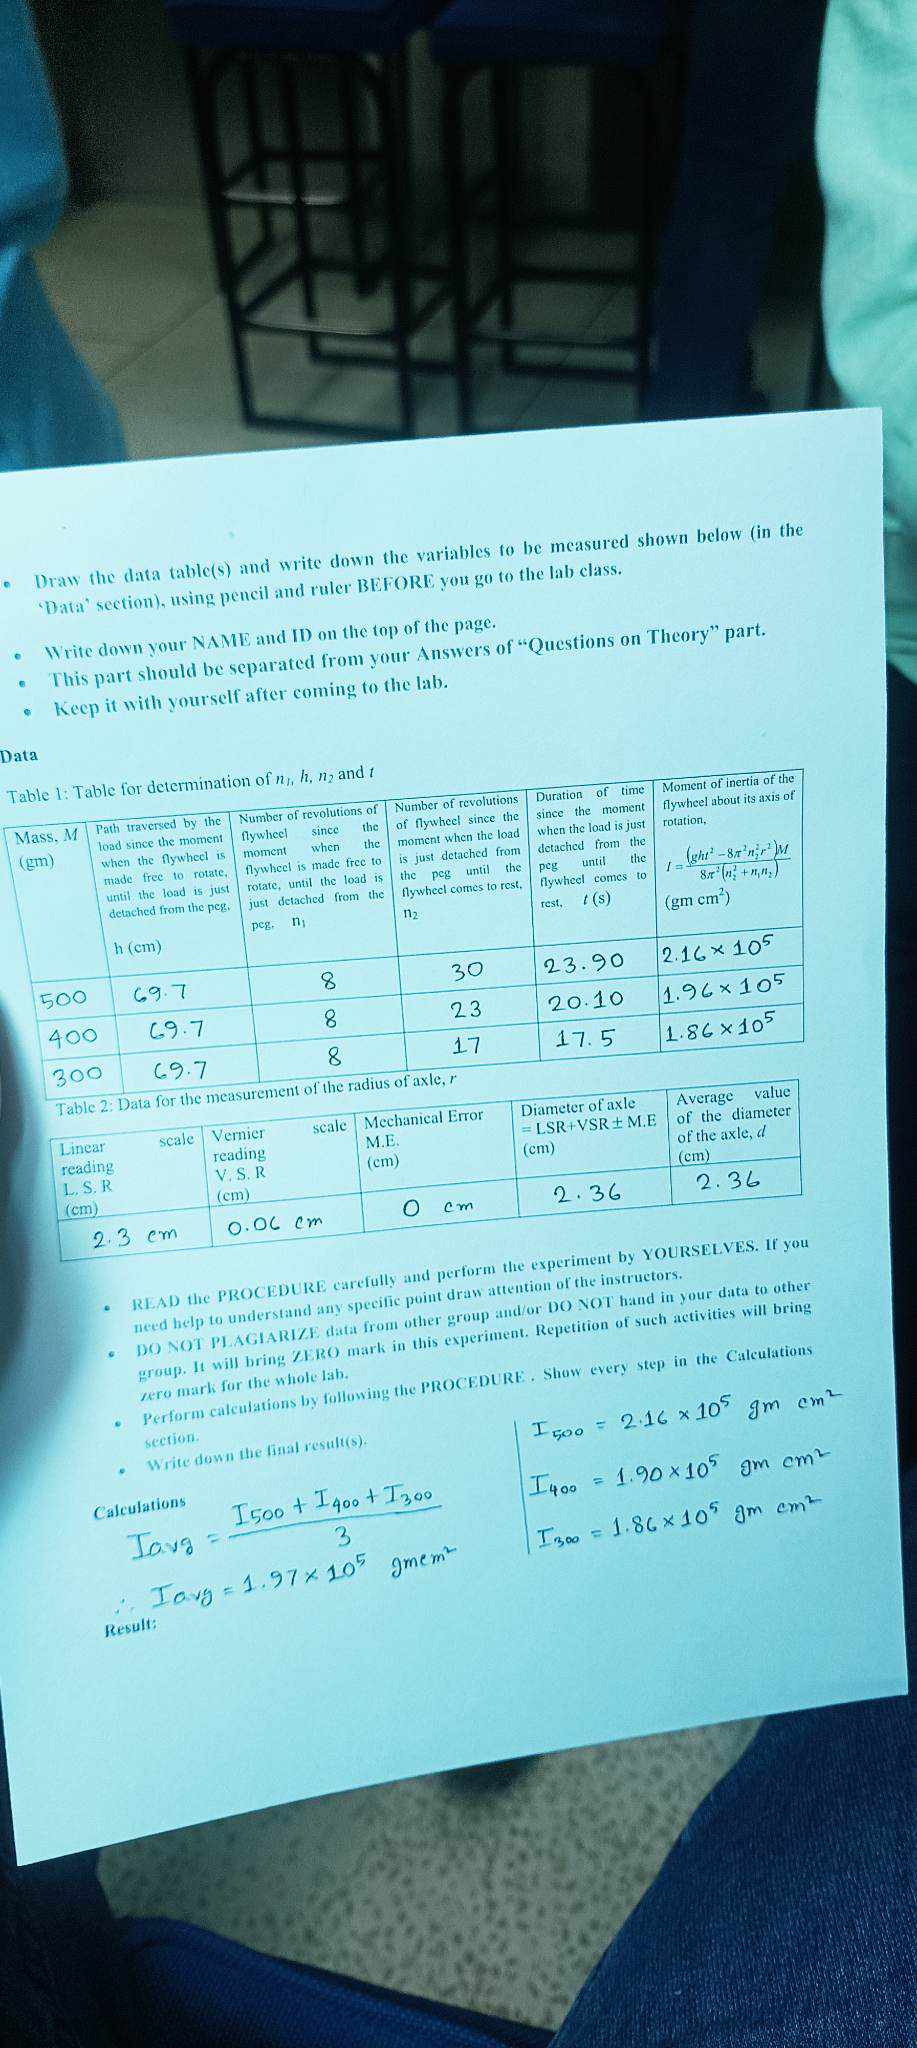 • Draw the data table(s) and write down the variables to be measured shown below (in the
'Data' section), using pencil and ruler BEFORE you go to the lab class.
• Write down your NAME and ID on the top of the page.
• This part should be separated from your Answers of “Questions on Theory” part.
• Keep it with yourself after coming to the lab.
Data
Table 1: Table for determination of n₁, h, n₂ and t
Mass, M
(gm)
Path traversed by the
load since the moment
when the flywheel is
made free to rotate,
until the load is just
detached from the peg,
h (cm)
Number of revolutions of
flywheel since the
moment when the
flywheel is made free to
rotate, until the load is
just detached from the
peg, n₁
Number of revolutions
of flywheel since the
moment when the load
is just detached from
the peg until the
flywheel comes to rest,
n₂
Duration of time
since the moment
when the load is just
detached from the
peg until the
flywheel comes to
rest, t (s)
Moment of inertia of the
flywheel about its axis of
rotation,
I = (ght² − 8π²n₂²r²)M / 8π²(n₂² + n₁n₂)
(gm cm²)
500 69.7 8 30 23.90 2.16 × 10⁵
400 69.7 8 23 20.10 1.96 × 10⁵
300 69.7 8 17 17.5 1.86 × 10⁵
Table 2: Data for the measurement of the radius of axle, r
Linear scale
reading
L. S. R
(cm)
Vernier scale
reading
V. S. R
(cm)
Mechanical Error
M.E.
(cm)
Diameter of axle
= LSR+VSR ± M.E
(cm)
Average value
of the diameter
of the axle, d
(cm)
2.3 cm 0.06 cm 0 cm 2.36 2.36
• READ the PROCEDURE carefully and perform the experiment by YOURSELVES. If you
need help to understand any specific point draw attention of the instructors.
• DO NOT PLAGIARIZE data from other group and/or DO NOT hand in your data to other
group. It will bring ZERO mark in this experiment. Repetition of such activities will bring
zero mark for the whole lab.
• Perform calculations by following the PROCEDURE . Show every step in the Calculations
section.
• Write down the final result(s).
Calculations
Iavg = I500 + I400 + I300 / 3
∴ Iavg = 1.97 × 10⁵ gmcm²
I500 = 2.16 × 10⁵ gm cm²
I400 = 1.90 × 10⁵ gm cm²
I300 = 1.86 × 10⁵ gm cm²
Result: